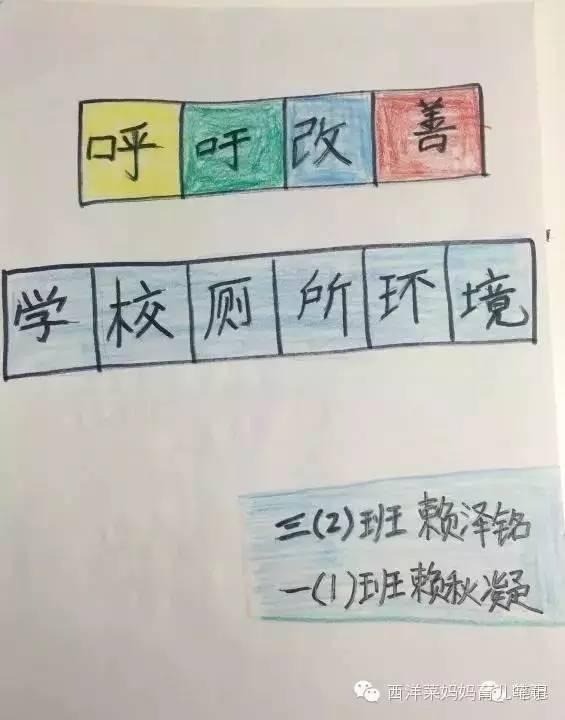 呼吁改善
学校厕所环境
三(2)班 赖泽铭
一(1)班赖秋凝
西洋菜妈妈育儿笔记